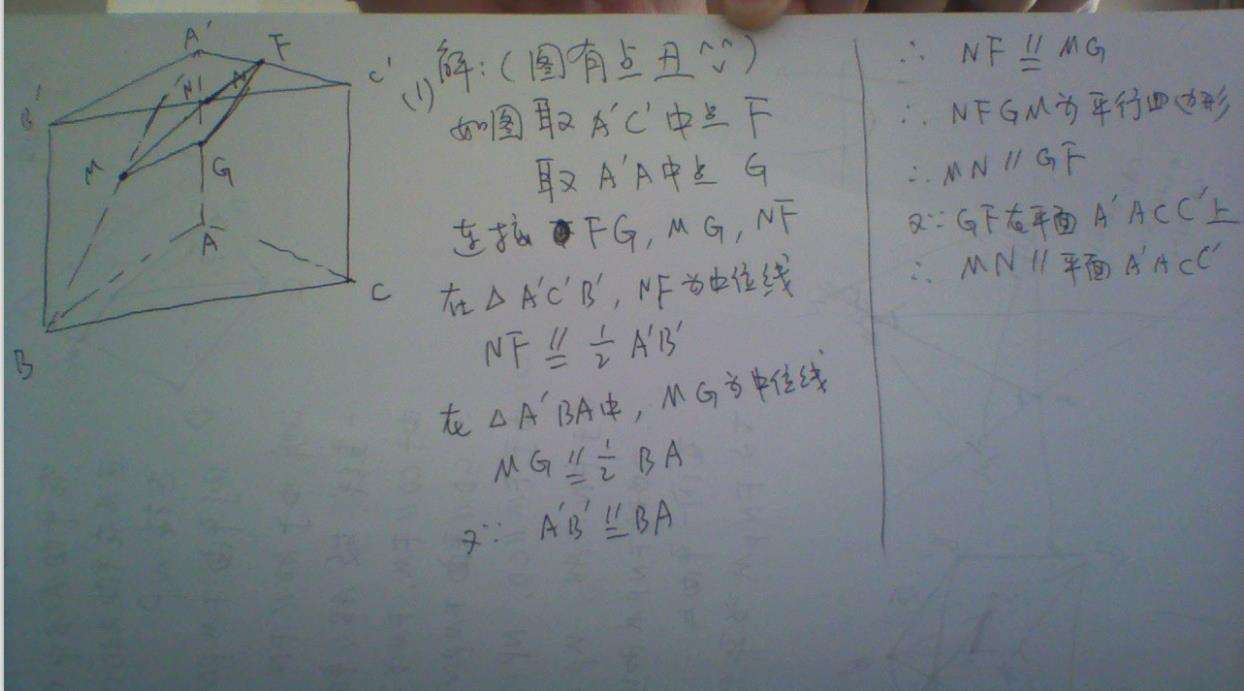 A' F
B' N C'
M G
A
B C
(1) 解:(图有点丑^ˇ^)
如图取A'C'中点F
取A'A中点G
连接FG, MG, NF
在△A'C'B', NF为中位线
NF∥= 1/2 A'B'
在△A'BA中, MG为中位线
MG∥= 1/2 BA
又∵ A'B'∥=BA
∴ NF∥=MG
∴ NFGM为平行四边形
∴ MN∥GF
又∵GF在平面A'ACC'上
∴ MN∥平面A'ACC'